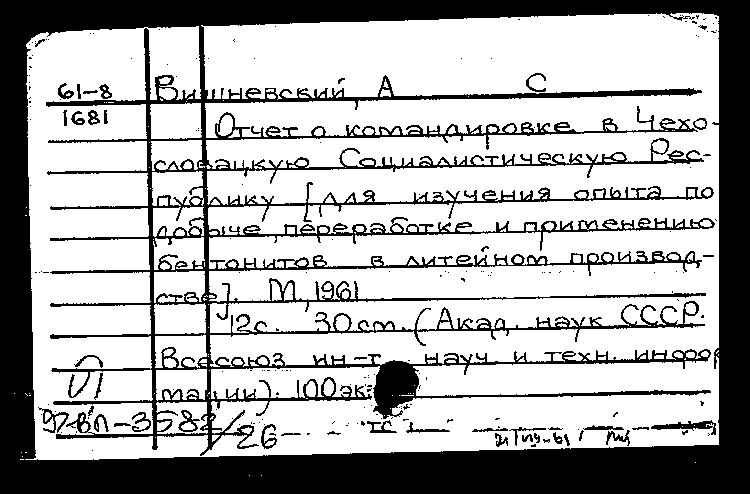 61-8
1681
Вишневский, А С
Отчет о командировке в Чехо-
словацкую Социалистическую Рес-
публику [для изучения опыта по
добыче, переработке и применению
бентонитов в литейном производ-
стве]. М, 1961
12с. 30см. (Акад. наук СССР.
Всесоюз ин-т науч. и техн. инфор
мации). 100эк